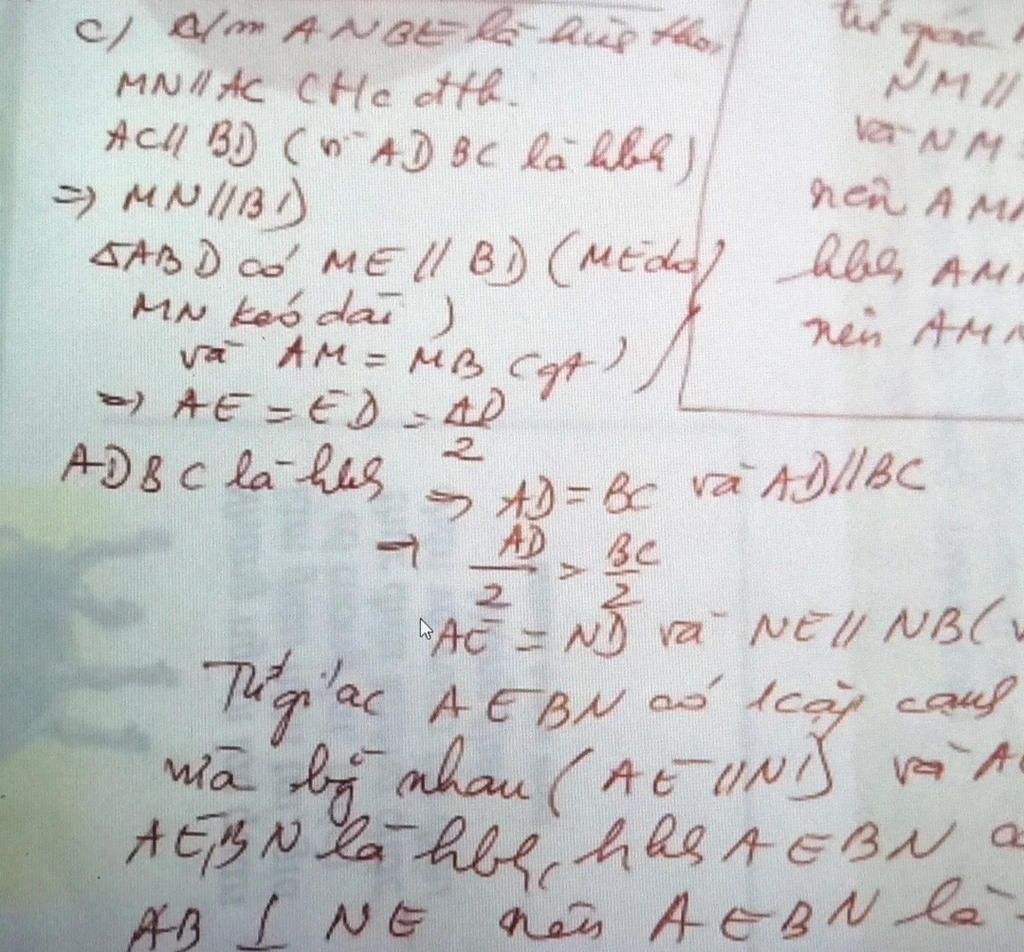 c) C/m ANBE là hình thoi
MN // AC ( Hc đtb.
AC // BD ( vì ADBC là hbh)
=> MN // BD
ΔABD có ME // BD ( ME do
MN kéo dài )
và AM = MB (gt)
=> AE = ED = AD/2
ADBC là hbh => AD = BC và AD // BC
=> AD/2 = BC/2
AE = ND và NE // NB (
Tứ giác AEBN có 1 cặp cạnh
mà bg nhau ( AE // N và A
AEBN là hbh, hbh AEBN
AB ⊥ NE nên AEBN là
tứ giác
NM //
và NM
nên AM
hbh AM
nên AMN